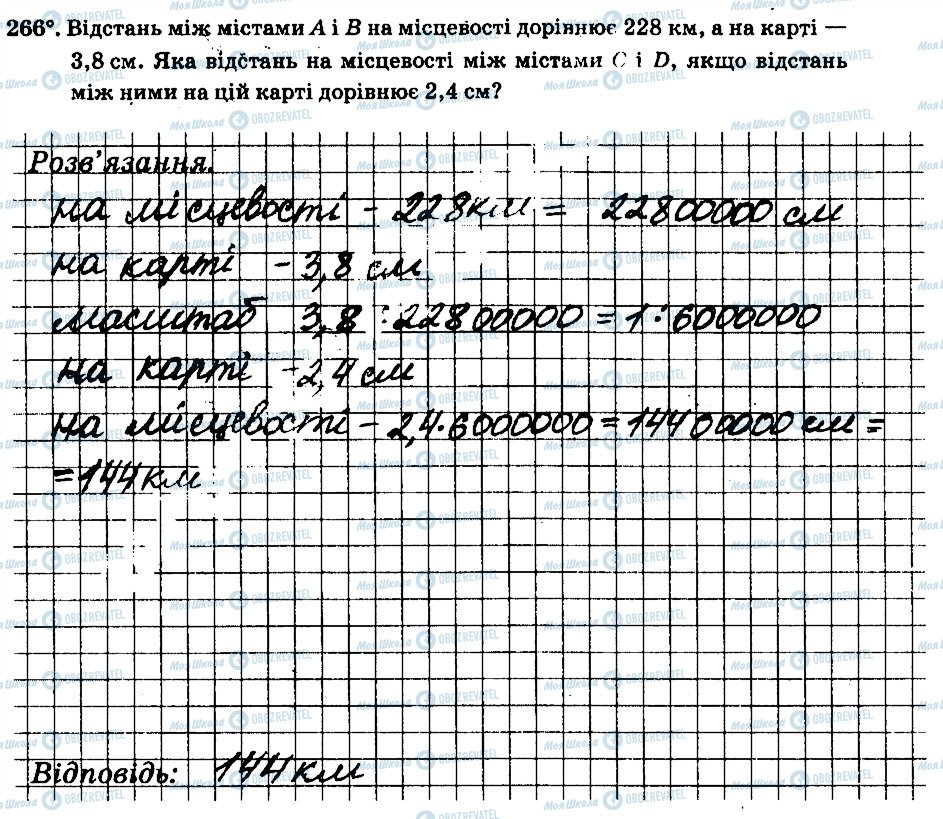 266°. Відстань між містами A і B на місцевості дорівнює 228 км, а на карті —
3,8 см. Яка відстань на місцевості між містами C і D, якщо відстань
між ними на цій карті дорівнює 2,4 см?
Розв'язання.
на місцевості - 228 км = 22800000 см
на карті - 3,8 см
масштаб 3,8 : 22800000 = 1 : 6000000
на карті - 2,4 см
на місцевості - 2,4·6000000 = 14400000 см =
= 144 км
Відповідь: 144 км